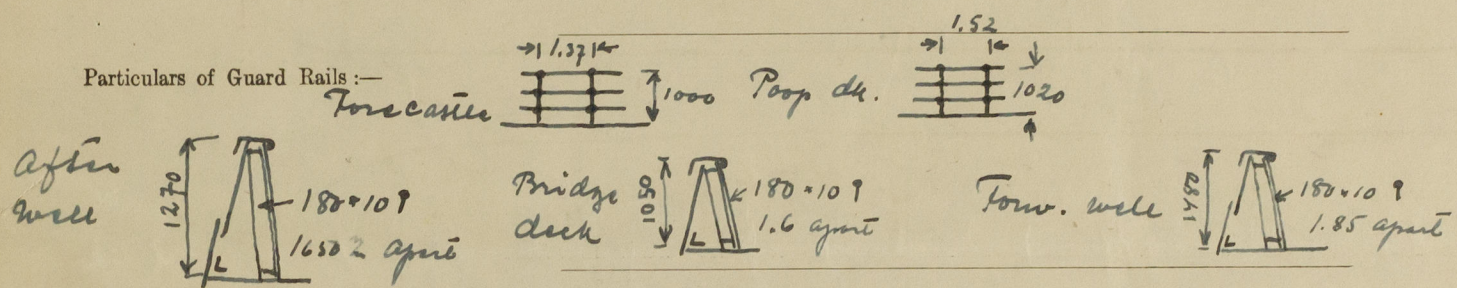 Particulars of Guard Rails :—
Forecastle
1.37
1000
Poop dk.
1.52
1020
After
well
1270
180×10
1650 apart
Bridge
deck
1050
180×10
1.6 apart
Forw. well
180×10
1.85 apart